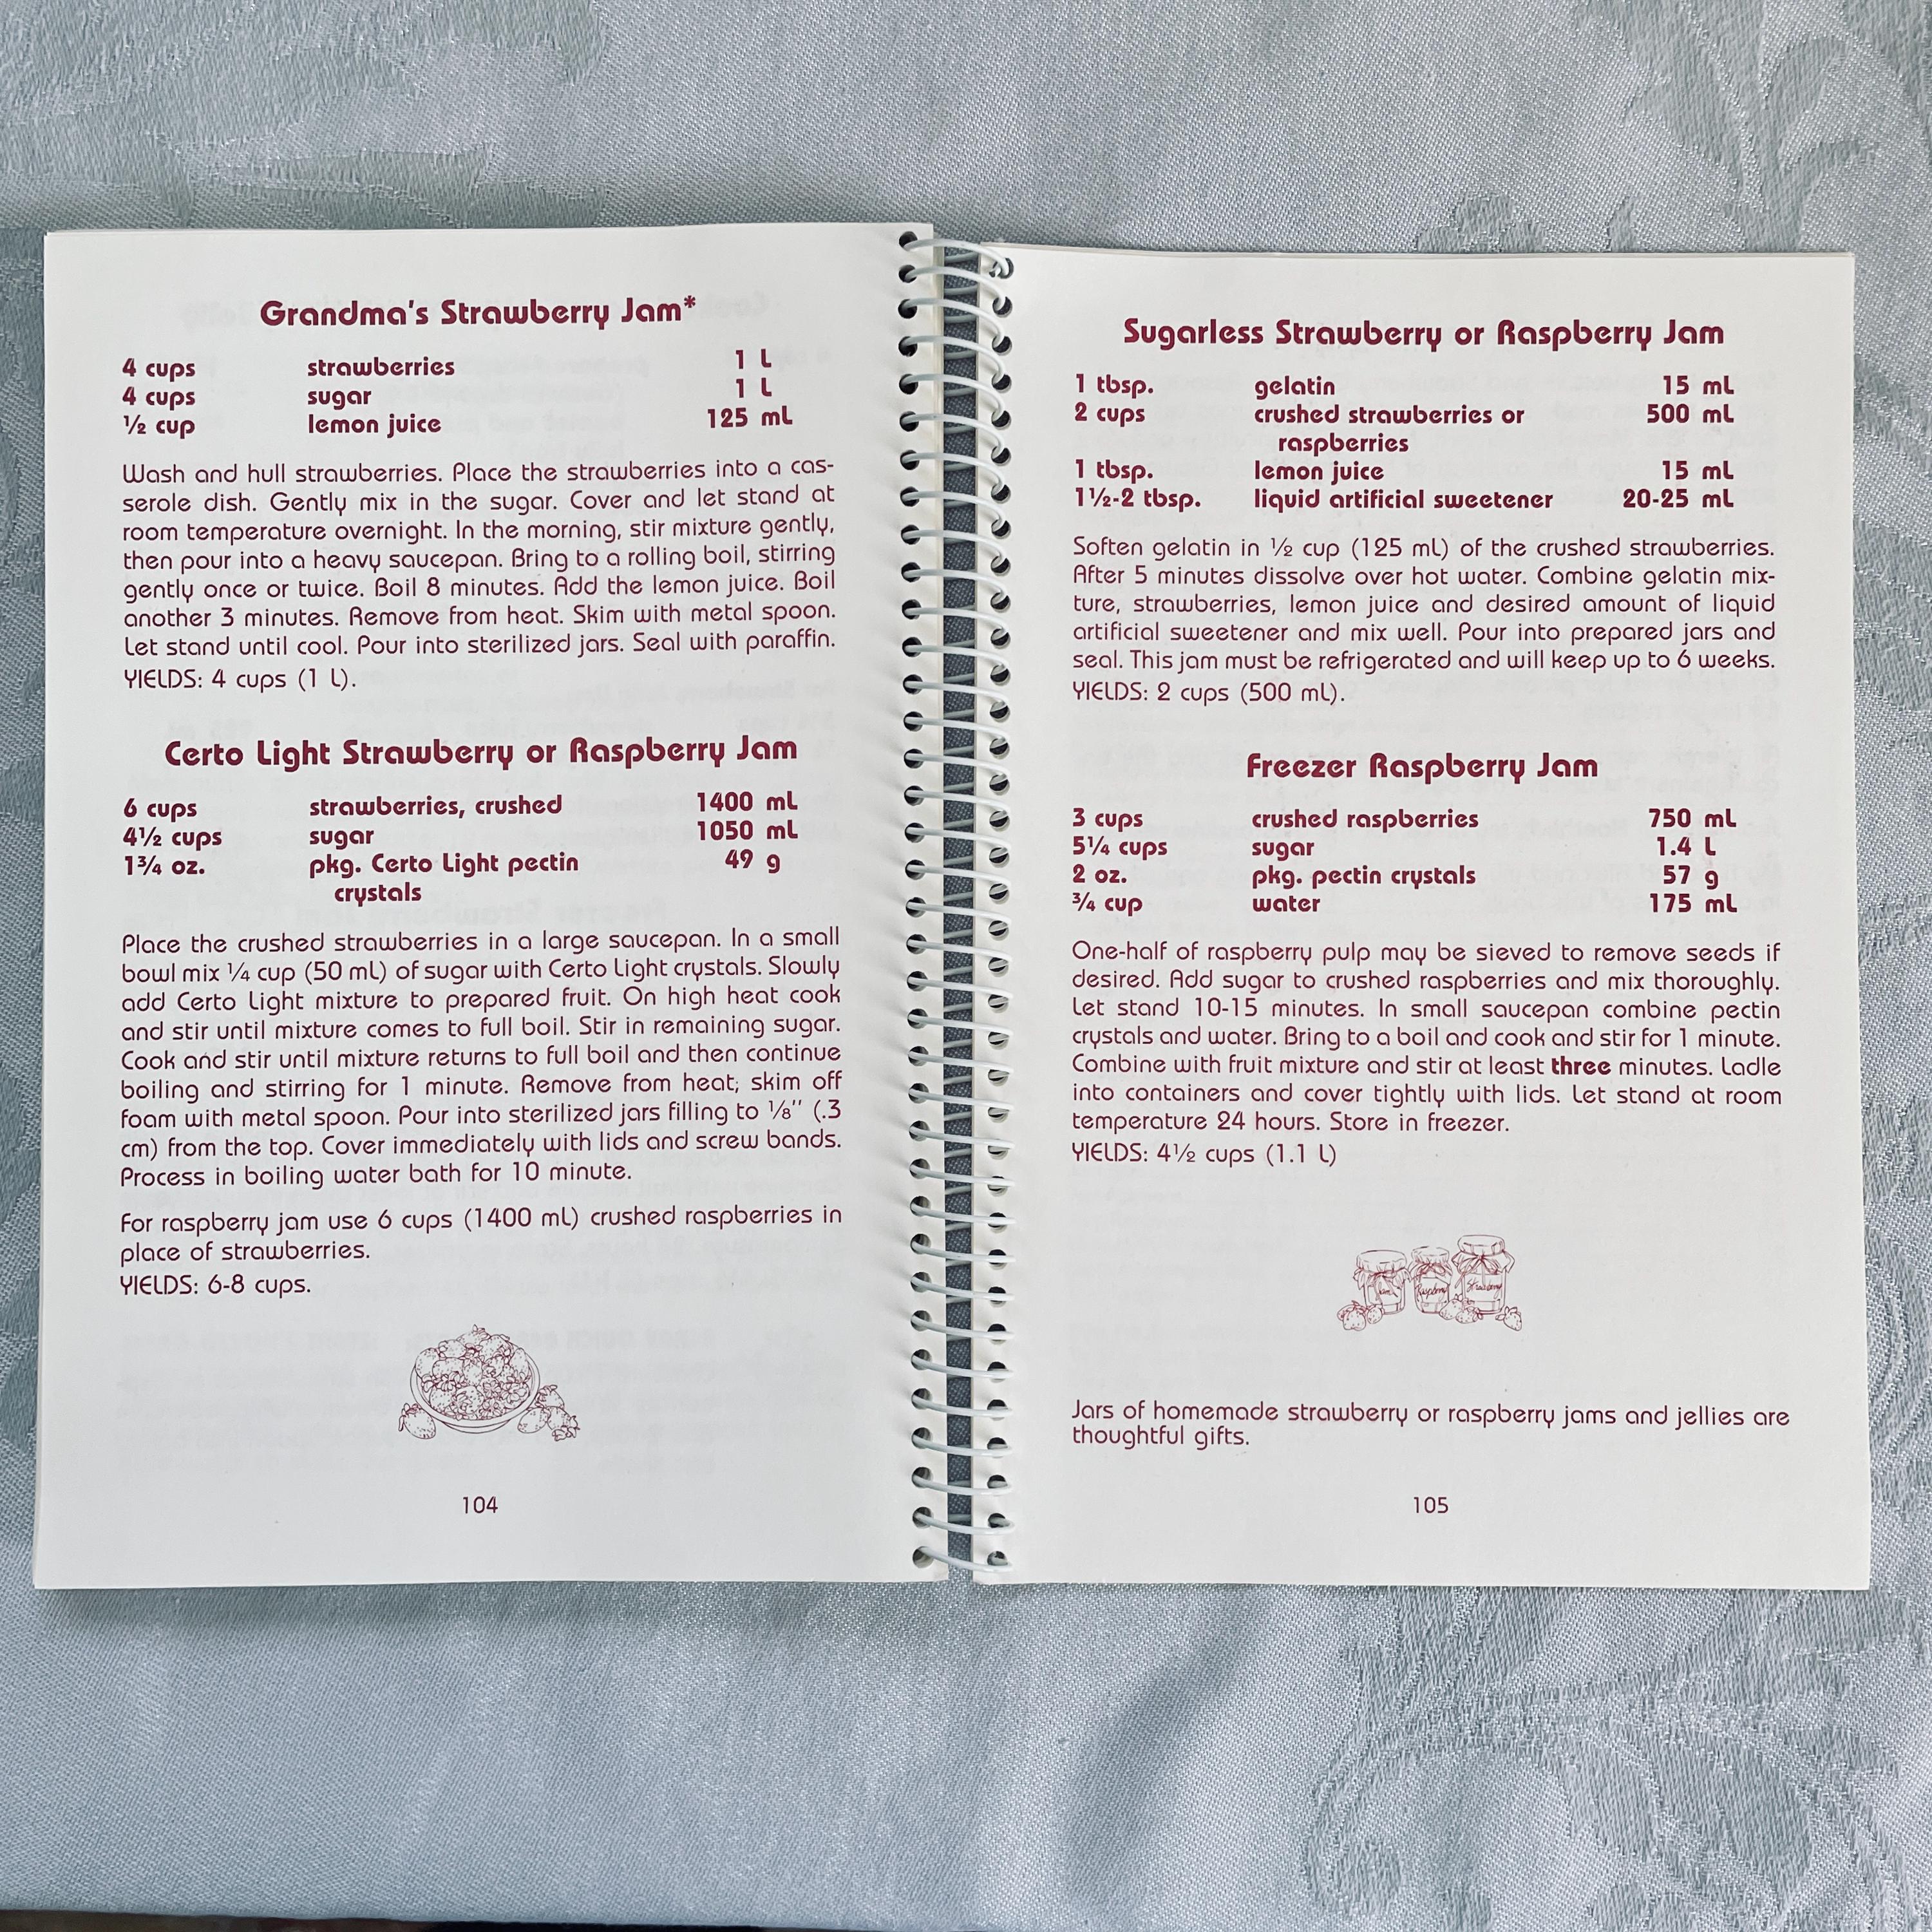 Grandma's Strawberry Jam*
4 cups strawberries 1 L
4 cups sugar 1 L
½ cup lemon juice 125 mL
Wash and hull strawberries. Place the strawberries into a cas-
serole dish. Gently mix in the sugar. Cover and let stand at
room temperature overnight. In the morning, stir mixture gently,
then pour into a heavy saucepan. Bring to a rolling boil, stirring
gently once or twice. Boil 8 minutes. Add the lemon juice. Boil
another 3 minutes. Remove from heat. Skim with metal spoon.
Let stand until cool. Pour into sterilized jars. Seal with paraffin.
YIELDS: 4 cups (1 L).
Certo Light Strawberry or Raspberry Jam
6 cups strawberries, crushed 1400 mL
4½ cups sugar 1050 mL
1¾ oz. pkg. Certo Light pectin 49 g
crystals
Place the crushed strawberries in a large saucepan. In a small
bowl mix ¼ cup (50 mL) of sugar with Certo Light crystals. Slowly
add Certo Light mixture to prepared fruit. On high heat cook
and stir until mixture comes to full boil. Stir in remaining sugar.
Cook and stir until mixture returns to full boil and then continue
boiling and stirring for 1 minute. Remove from heat; skim off
foam with metal spoon. Pour into sterilized jars filling to ⅛" (.3
cm) from the top. Cover immediately with lids and screw bands.
Process in boiling water bath for 10 minute.
For raspberry jam use 6 cups (1400 mL) crushed raspberries in
place of strawberries.
YIELDS: 6-8 cups.
104
Sugarless Strawberry or Raspberry Jam
1 tbsp. gelatin 15 mL
2 cups crushed strawberries or 500 mL
raspberries
1 tbsp. lemon juice 15 mL
1½-2 tbsp. liquid artificial sweetener 20-25 mL
Soften gelatin in ½ cup (125 mL) of the crushed strawberries.
After 5 minutes dissolve over hot water. Combine gelatin mix-
ture, strawberries, lemon juice and desired amount of liquid
artificial sweetener and mix well. Pour into prepared jars and
seal. This jam must be refrigerated and will keep up to 6 weeks.
YIELDS: 2 cups (500 mL).
Freezer Raspberry Jam
3 cups crushed raspberries 750 mL
5¼ cups sugar 1.4 L
2 oz. pkg. pectin crystals 57 g
¾ cup water 175 mL
One-half of raspberry pulp may be sieved to remove seeds if
desired. Add sugar to crushed raspberries and mix thoroughly.
Let stand 10-15 minutes. In small saucepan combine pectin
crystals and water. Bring to a boil and cook and stir for 1 minute.
Combine with fruit mixture and stir at least three minutes. Ladle
into containers and cover tightly with lids. Let stand at room
temperature 24 hours. Store in freezer.
YIELDS: 4½ cups (1.1 L)
Raspberry Strawberry
Jars of homemade strawberry or raspberry jams and jellies are
thoughtful gifts.
105